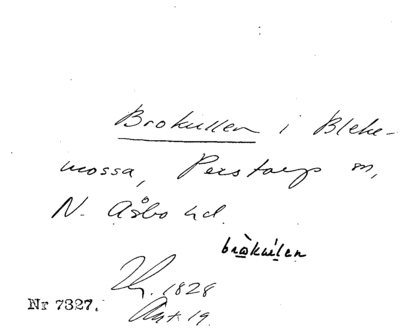 Brokullen i Bleke-
mossa, Perstorp sn,
N. Åsbo hd.
bròkul̀en
1828
Nr 7327.
Ant. 19